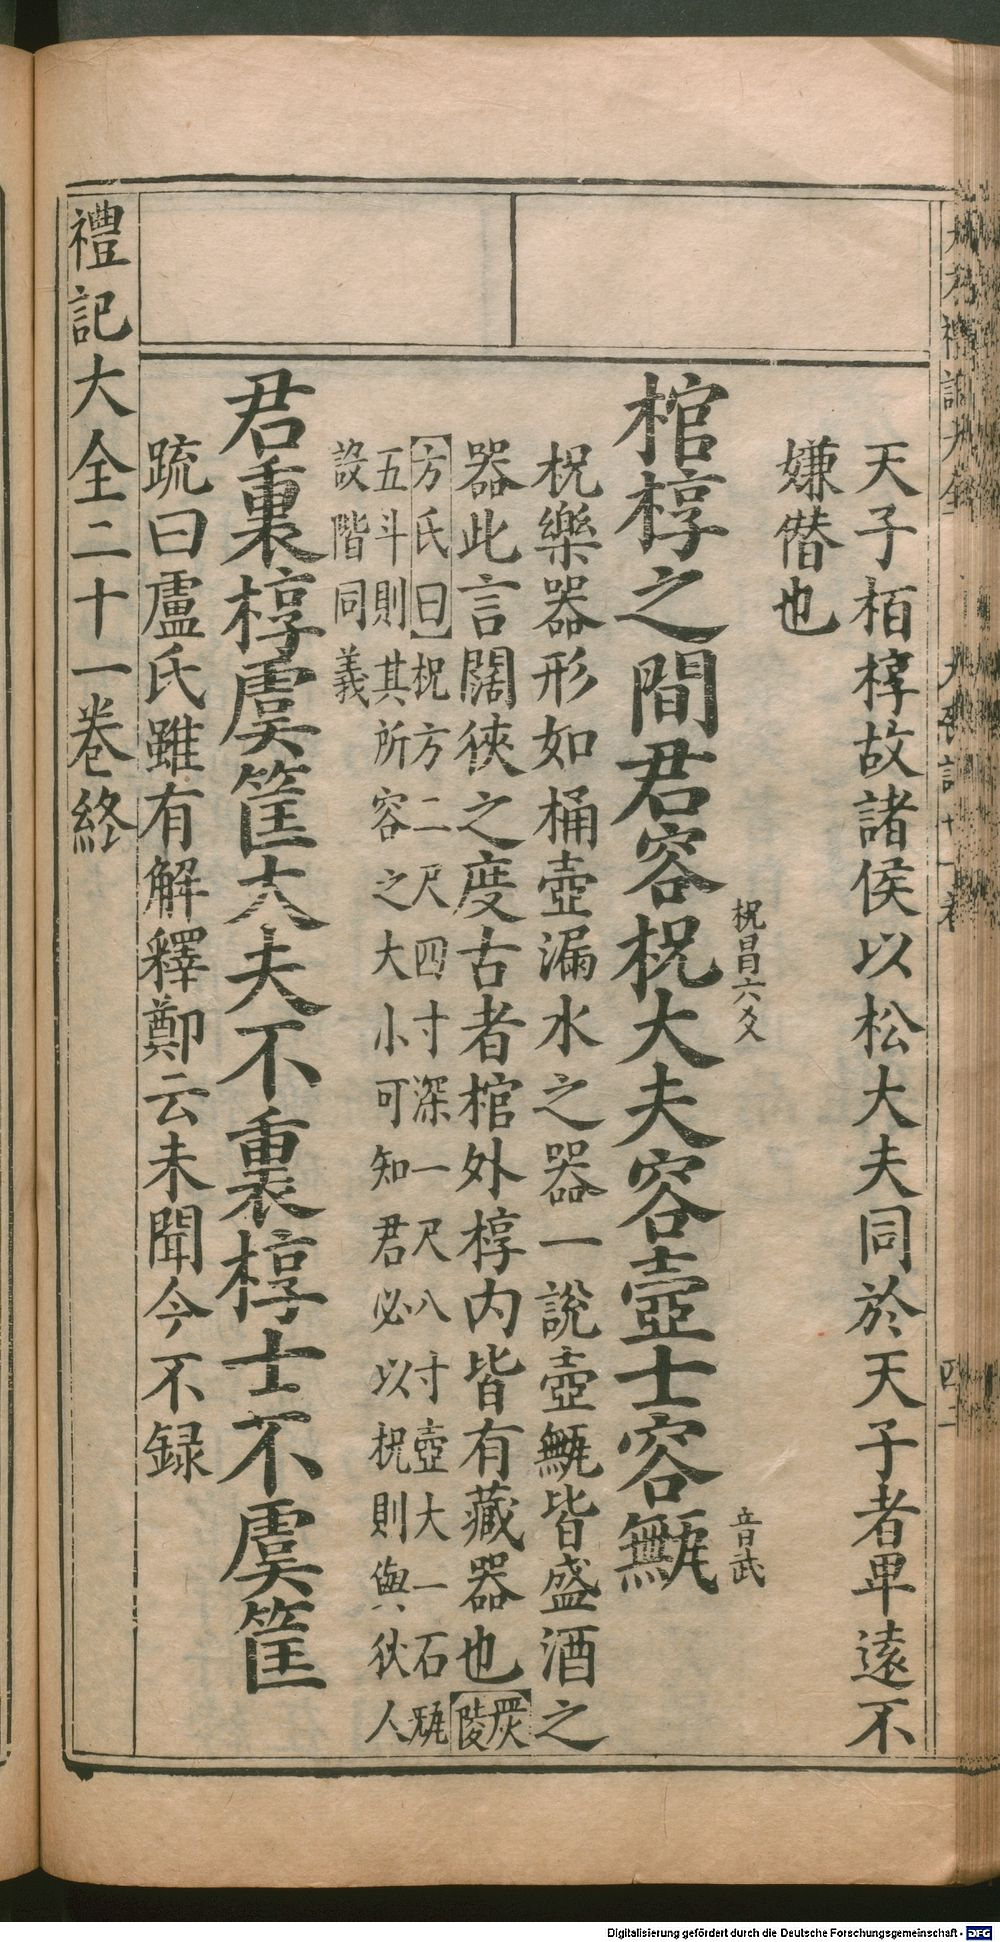 天子栢椁故諸侯以松大夫同於天子者卑遠不
嫌僣也
棺椁之間君容柷大夫容壺士容甒
柷昌六反
音武
柷樂器形如桶壺漏水之器一說壺甒皆盛酒之
器此言闊狹之度古者棺外椁内皆有藏器也【嚴陵
方氏曰】柷方二尺四寸深一尺八寸壺大一石甒
五斗則其所容之大小可知君必以柷則與狄人
設階同義
君裏椁虞筐大夫不裏椁士不虞筐
疏曰盧氏雖有解釋鄭云未聞今不録
禮記大全二十一卷終
Digitalisierung gefördert durch die Deutsche Forschungsgemeinschaft - DFG